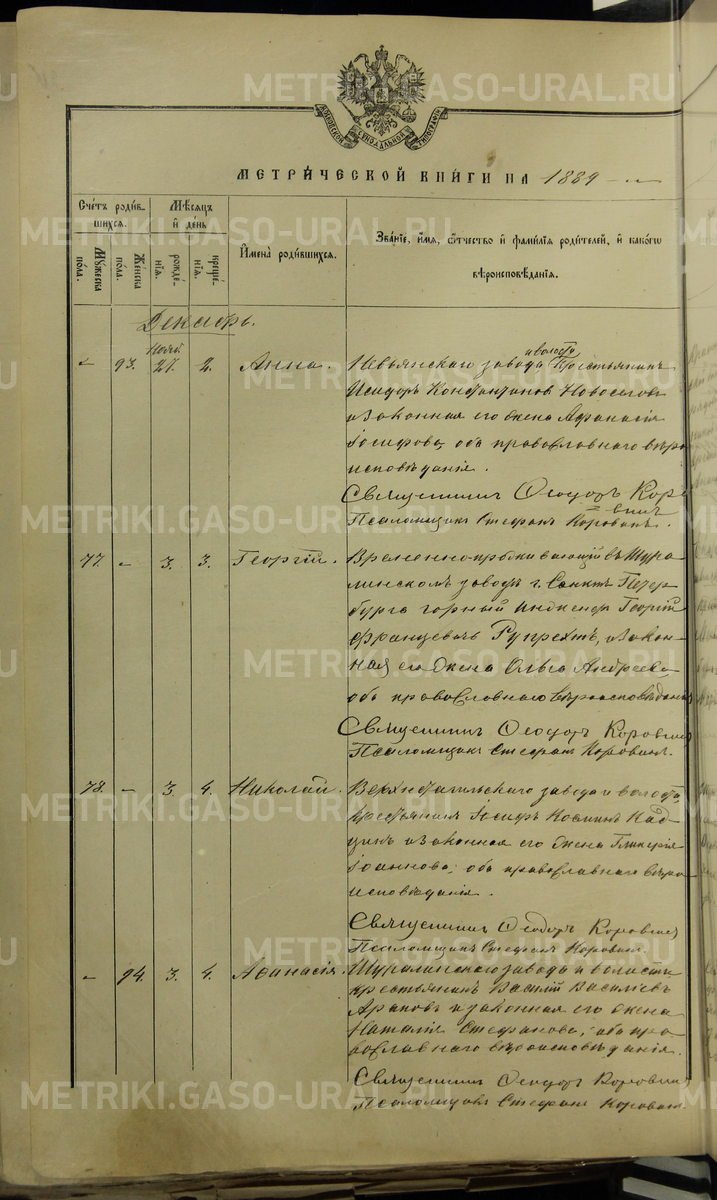 МОСКОВСКОЙ СѴНОДАЛЬНОЙ ТИПОГРАФІИ
МЕТРИ́ЧЕСКОЙ КНИ́ГИ НА 1889
Сче́тъ роди́вшихся.
Му́жеска по́ла.
Же́нска по́ла.
Мѣ́сяцъ и҆ де́нь
рожде́нїѧ.
креще́нїѧ.
И҆мена̀ роди́вшихсѧ.
Зва́нїе, и҆́мѧ, ѻ҆́тчество и҆ фами́лїѧ роди́телей, и҆ како́гѡ
вѣроисповѣ́данїѧ.
Декабрь.
- 93. Нояб. 27. 2. Анна. Невьянскаго завода и волости крестьянинъ
Исидоръ Константиновъ Новоселовъ
и законная его жена Афанасія
Іосифова, оба православнаго вѣро
исповѣданія.
Священникъ Ѳеодоръ Коровинъ
Псаломщикъ Стефанъ Коровинъ.
77. - 3. 3. Георгій. Временно-проживающій въ Шура
линскомъ заводѣ г. Санктъ Петер
бурга горный инженеръ Георгій
Францевичъ Рупрехтъ, и закон
ная его жена Ольга Андреева,
оба православнаго вѣроисповѣданія
Священникъ Ѳеодоръ Коровинъ
Псаломщикъ Стефанъ Коровинъ.
78. - 3. 4. Николай. Верхнетагильскаго завода и волости,
крестьянинъ Іосифъ Косминъ
и законная его жена Гликерія
Іоаннова, оба православнаго вѣро
исповѣданія.
Священникъ Ѳеодоръ Коровинъ
Псаломщикъ Стефанъ Коровинъ.
- 94. 3. 4. Аѳанасія. Шуралинскаго завода и волости
крестьянинъ Василій Васильевъ
Араповъ и законная его жена
Наталія Стефанова, оба пра
вославнаго вѣроисповѣданія.
Священникъ Ѳеодоръ Коровинъ
Псаломщикъ Стефанъ Коровинъ
METRIKI.GASO-URAL.RU